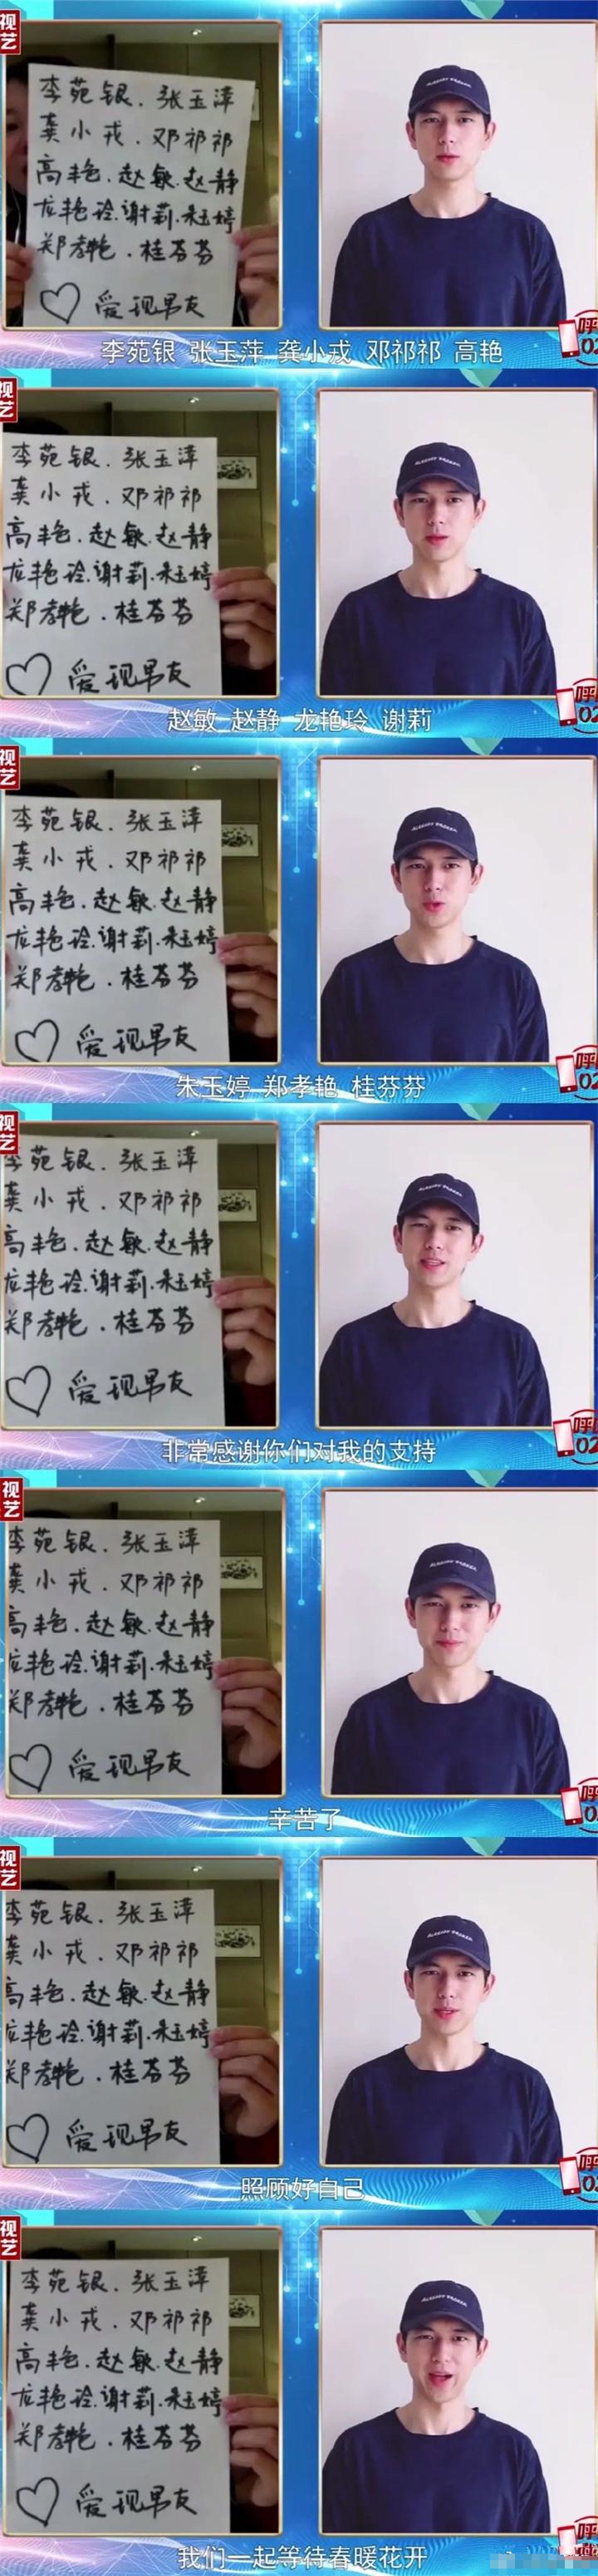 视
艺
李苑银．张玉萍
龚小戎．邓祁祁
高艳．赵敏．赵静
龙艳玲．谢莉．朱玉婷
郑孝艳．桂芬芬
♡ 爱现男友
呼
02
李苑银 张玉萍 龚小戎 邓祁祁 高艳
视
艺
李苑银．张玉萍
龚小戎．邓祁祁
高艳．赵敏．赵静
龙艳玲．谢莉．朱玉婷
郑孝艳．桂芬芬
♡ 爱现男友
ALREADY BROKEN
呼
02
赵敏 赵静 龙艳玲 谢莉
视
艺
李苑银．张玉萍
龚小戎．邓祁祁
高艳．赵敏．赵静
龙艳玲．谢莉．朱玉婷
郑孝艳．桂芬芬
♡ 爱现男友
ALREADY BROKEN
呼
02
朱玉婷 郑孝艳 桂芬芬
视
艺
李苑银．张玉萍
龚小戎．邓祁祁
高艳．赵敏．赵静
龙艳玲．谢莉．朱玉婷
郑孝艳．桂芬芬
♡ 爱现男友
ALREADY BROKEN
呼
02
非常感谢你们对我的支持
视
艺
李苑银．张玉萍
龚小戎．邓祁祁
高艳．赵敏．赵静
龙艳玲．谢莉．朱玉婷
郑孝艳．桂芬芬
♡ 爱现男友
ALREADY BROKEN
呼
0
辛苦了
视
艺
李苑银．张玉萍
龚小戎．邓祁祁
高艳．赵敏．赵静
龙艳玲．谢莉．朱玉婷
郑孝艳．桂芬芬
♡ 爱现男友
ALREADY BROKEN
呼
02
照顾好自己
视
艺
李苑银．张玉萍
龚小戎．邓祁祁
高艳．赵敏．赵静
龙艳玲．谢莉．朱玉婷
郑孝艳．桂芬芬
♡ 爱现男友
ALREADY BROKEN
呼
我们一起等待春暖花开